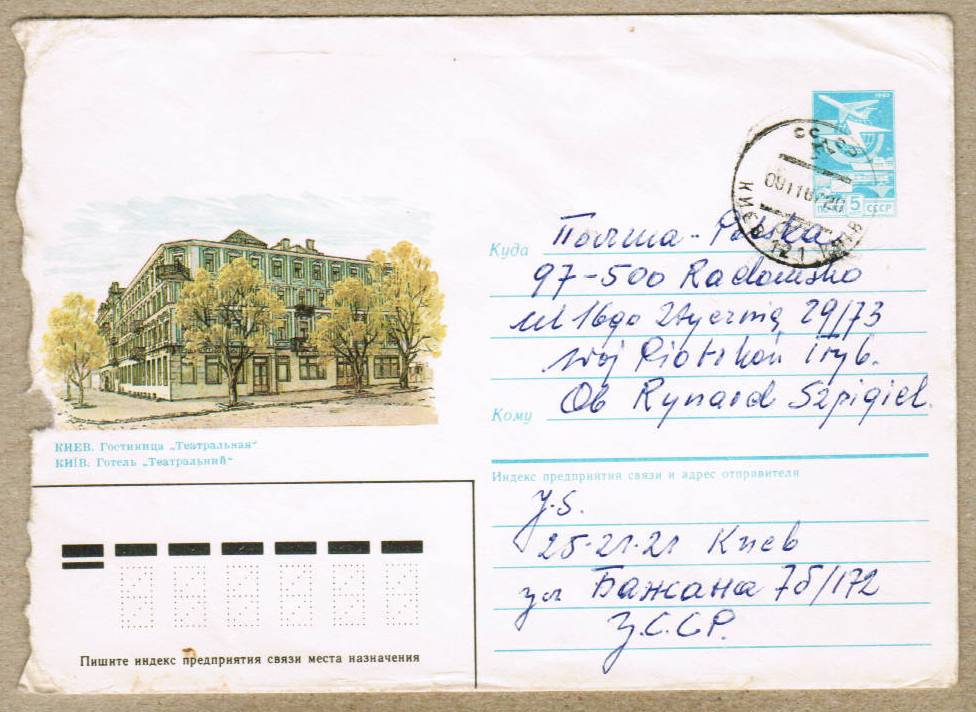 1982
ПОЧТА 5 СССР
КИЕВ 121 КИЇВ
Куда Польша - Polska
97-500 Radomsko
ul 16go Stycznia 29/73
woj Piotrków Tryb.
Кому Ob Rynard Szpigiel.
КИЕВ. Гостиница „Театральная“
КИЇВ. Готель „Театральний“
Индекс предприятия связи и адрес отправителя
25-21-21 Киев
ул Бажана 7б/172
У.С.С.Р.
Пишите индекс предприятия связи места назначения